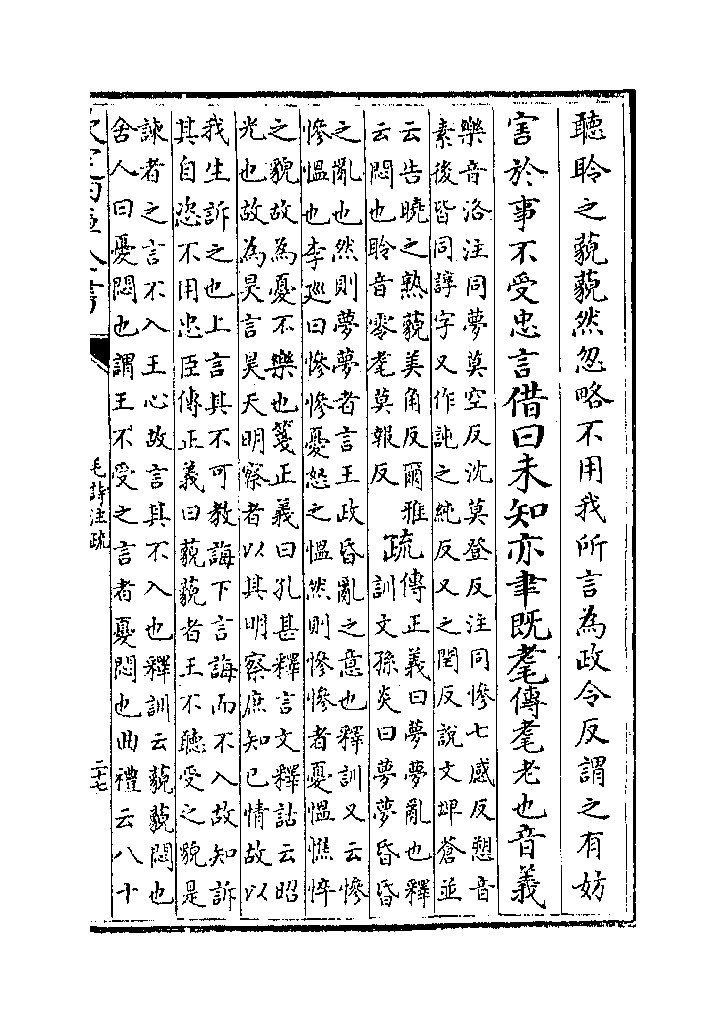 聽聆之藐藐然忽略不用我所言為政令反謂之有妨
害於事不受忠言借曰未知亦聿既耄傳耄老也音義
樂音洛注同夢莫空反沈莫登反注同慘七感反愬音
素後皆同諄字又作訰之純反又之閏反說文埤蒼並
云告曉之熟藐美角反爾雅
云悶也聆音零耄莫報反
疏傳正義曰夢夢亂也釋
訓文孫炎曰夢夢昏昏
之亂也然則夢夢者言王政昏亂之意也釋訓又云慘
慘慍也李巡曰慘慘憂怒之慍然則慘慘者憂慍憔悴
之貌故為憂不樂也箋正義曰孔甚釋言文釋詁云昭
光也故為昊言昊天明察者以其明察庶知己情故以
我生訴之也上言其不可教誨下言誨而不入故知訴
其自恣不用忠臣傳正義曰藐藐者王不聽受之貌是
諫者之言不入王心故言其不入也釋訓云藐藐悶也
舍人曰憂悶也謂王不受之言者憂悶也曲禮云八十
毛詩注疏
二十七